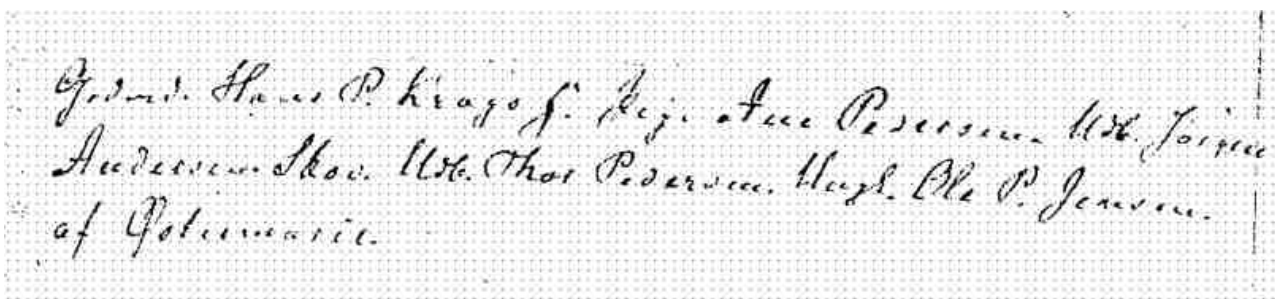 Gdmd. Hans P. Krags H. Pige Ane Pedersen. Udb. Jörgen
Andersen Skov. Udb. Thor Pedersen. Ungk. Ole P. Jensen.
af Østermarie.